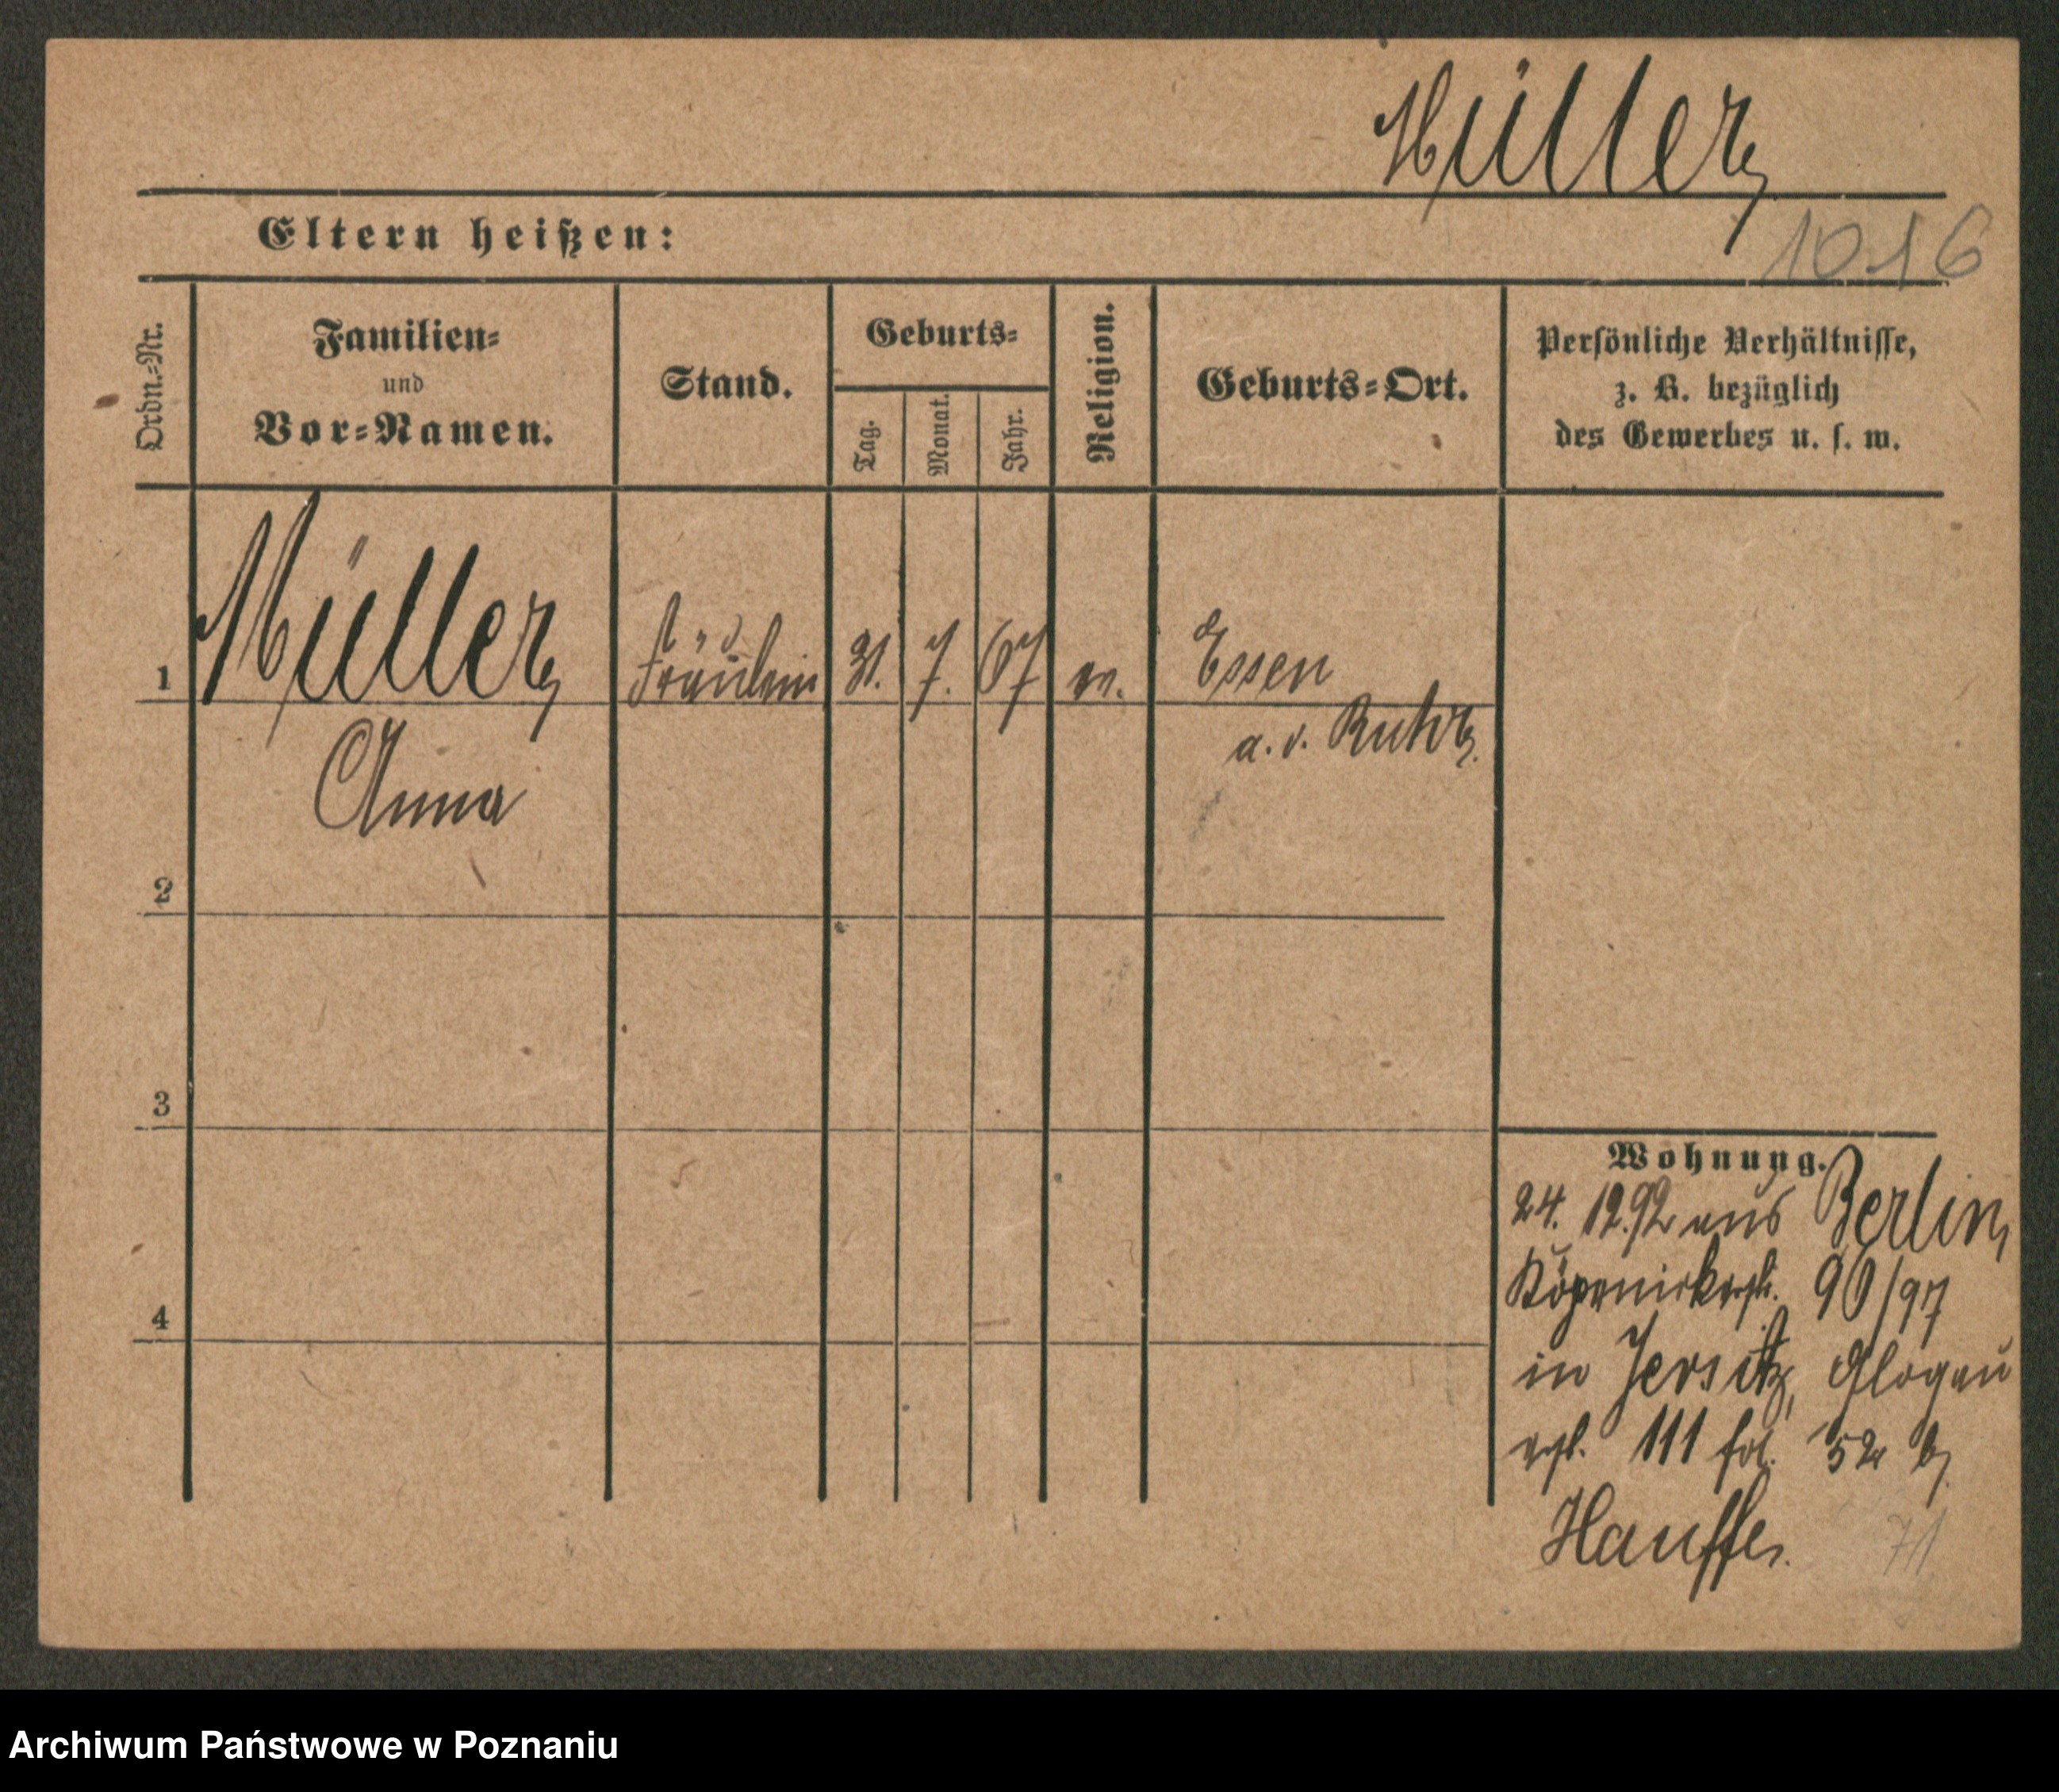 Müller
1016
Eltern heißen:
Ordn.-Nr.
Familien-
und
Vor-Namen.
Stand.
Geburts-
Tag.
Monat.
Jahr.
Religion.
Geburts-Ort.
Persönliche Verhältnisse,
z. B. bezüglich
des Gewerbes u. s. w.
1 Müller Fräulein 31. 7. 67 ev. Essen
Anna a. d. Ruhr.
2
3
4
Wohnung.
24. 12.92 aus Berlin,
Köpenickerstr. 96/97
in Jersitz, Glogau
erstr. 111 fol. 52 b
Hauffe.
71
Archiwum Państwowe w Poznaniu